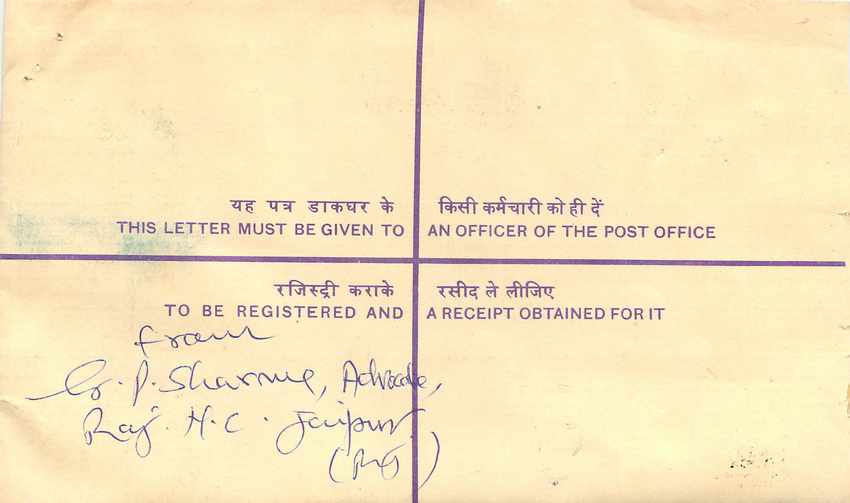 यह पत्र डाकघर के किसी कर्मचारी को ही दें
THIS LETTER MUST BE GIVEN TO AN OFFICER OF THE POST OFFICE
रजिस्ट्री कराके रसीद ले लीजिए
TO BE REGISTERED AND A RECEIPT OBTAINED FOR IT
from
G. P. Sharma, Advocate,
Raj. H.C. Jaipur
(Raj)